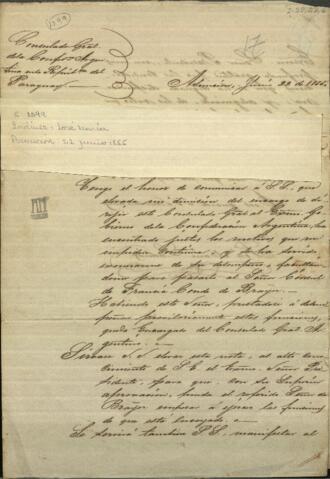 1899
Consulado Gral.
de la Confon Argen
tina en la Repúb. del
Paraguay
Asuncion, Junio 22 de 1855.
C 1899
Jose Maria
Asuncion 22 junio 1855
Tengo el honor de comunicar a S.E., que
elevada mi dimision del encargo de di-
rijir este Consulado Gral. al Exmo. Go-
bierno de la Confederacion Argentina, ha
encontrado justos los motivos que me
impedian continuar, y se ha servido
exonerarme de su desempeño, facultan
dome para pasarlo al Señor Consul
de Francia Conde de Brayer.
Habiendo este Señor, prestadose á desem-
peñar provisoriamente estas funciones,
queda encargado del Consulado Gral. Ar-
gentino.
Sirvase S.E. elevar esta nota, al alto cono-
cimiento de S.E. el Exmo. Señor Pre-
sidente, para que, con su Suprema
aprovacion, pueda el referido Señor de
Brayer empezar á ejercer las funciones
de que está encargado.
Se servirá tambien S.E. manifestar al